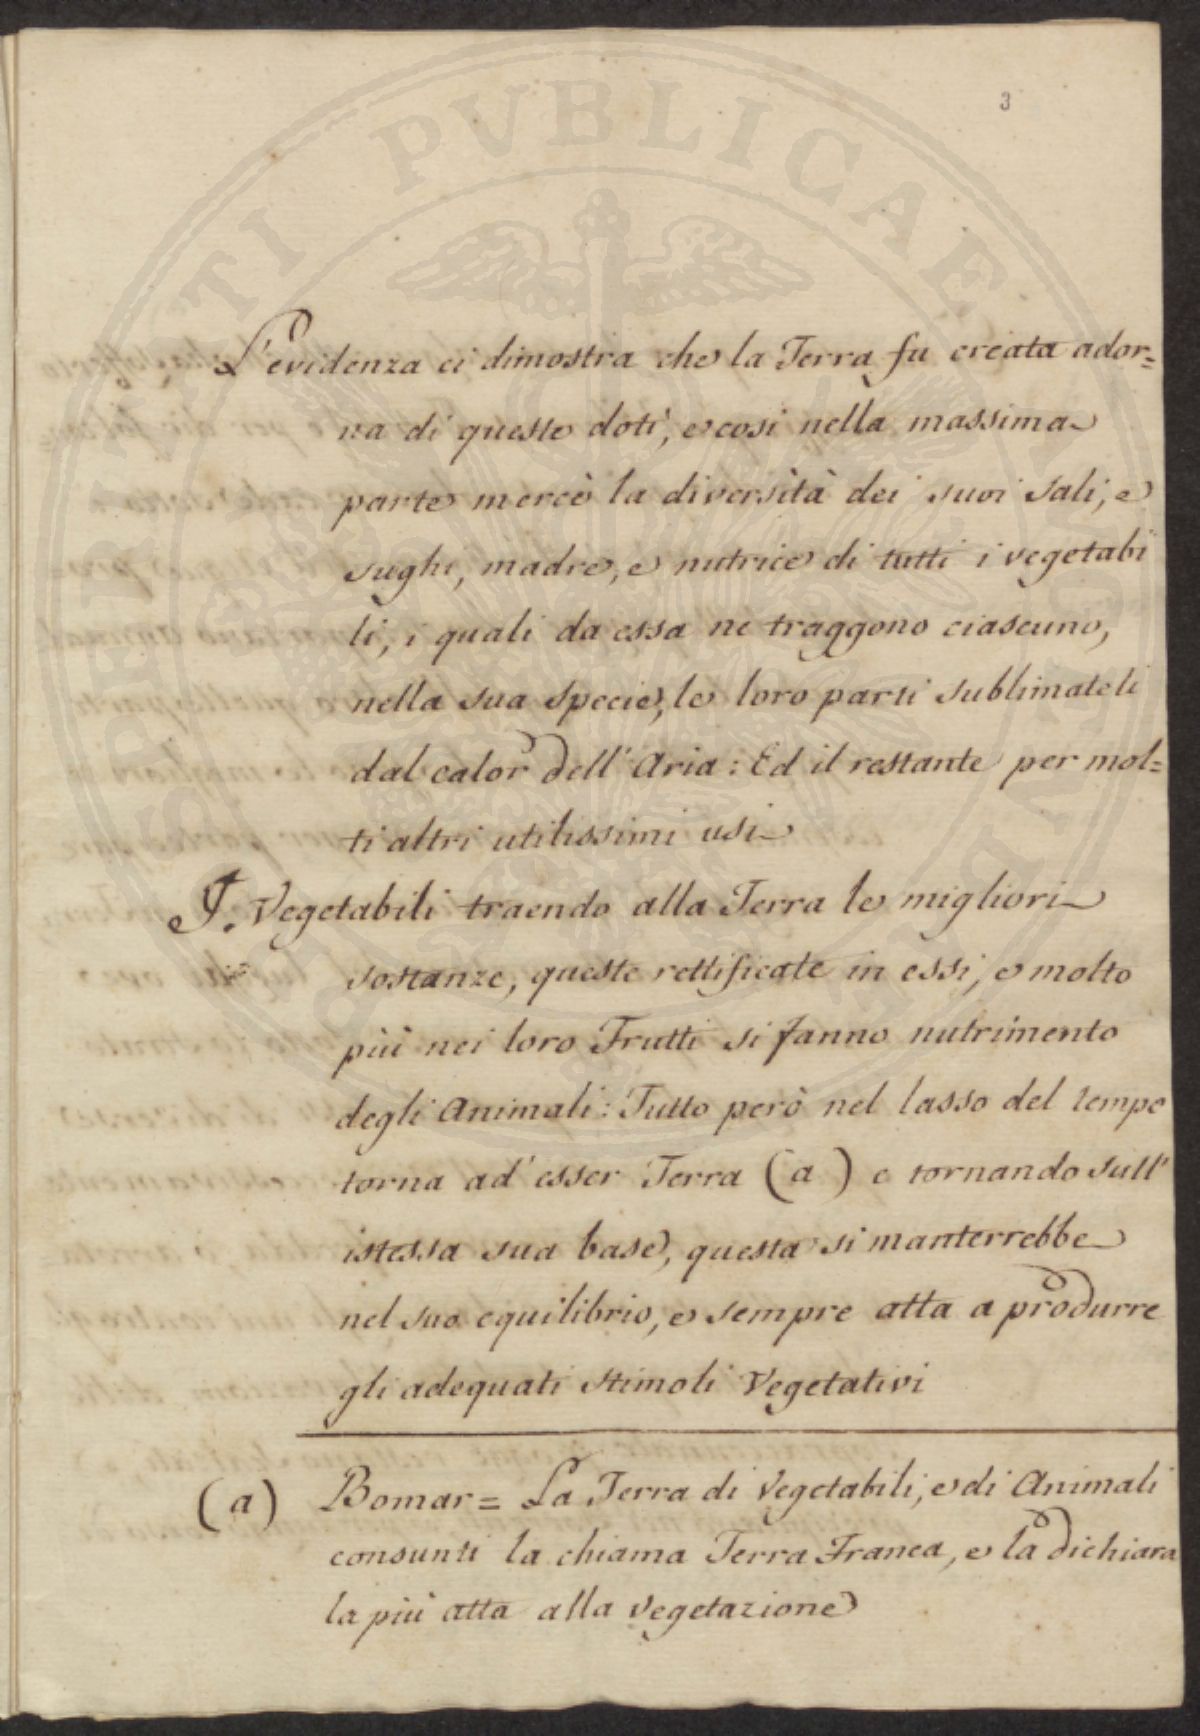 3
L'evidenza ci dimostra che la Terra fu creata ador=
na di queste doti, e così nella massima
parte mercè la diversità dei suoi Sali, e
sughi, madre, e nutrice di tutti i vegetabi
li, i quali da essa ne traggono ciascuno,
nella sua specie, le loro parti sublimateli
dal calor dell'Aria: Ed il restante per mol=
ti altri utilissimi usi
I. Vegetabili traendo alla Terra le migliori
sostanze, queste rettificate in essi, e molto
più nei loro Frutti si fanno nutrimento
degli Animali: Tutto però nel lasso del tempo
torna ad'esser Terra (a) e tornando sull'
istessa sua base, questa si manterrebbe
nel suo equilibrio, e sempre atta a produrre
gli adequati stimoli Vegetativi
(a) Bomar = La Terra di Vegetabili, e di Animali
consunti la chiama Terra Franca, e la dichiara
la più atta alla vegetazione
PROSPERITATI PVBLICAE